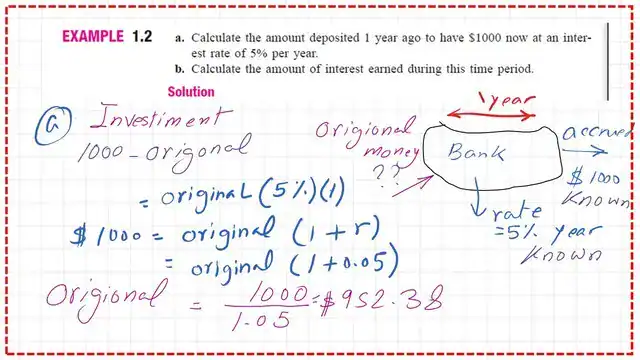 EXAMPLE 1.2
a. Calculate the amount deposited 1 year ago to have $1000 now at an inter-
est rate of 5% per year.
b. Calculate the amount of interest earned during this time period.
Solution
a Investiment
1000 - origonal
= original (5%)(1)
$1000 = original (1+r)
= original (1+0.05)
Origional = 1000 / 1.05 = $952.38
1 year
Origional
money
??
Bank
accrued
$1000
Known
rate
=5% year
Known